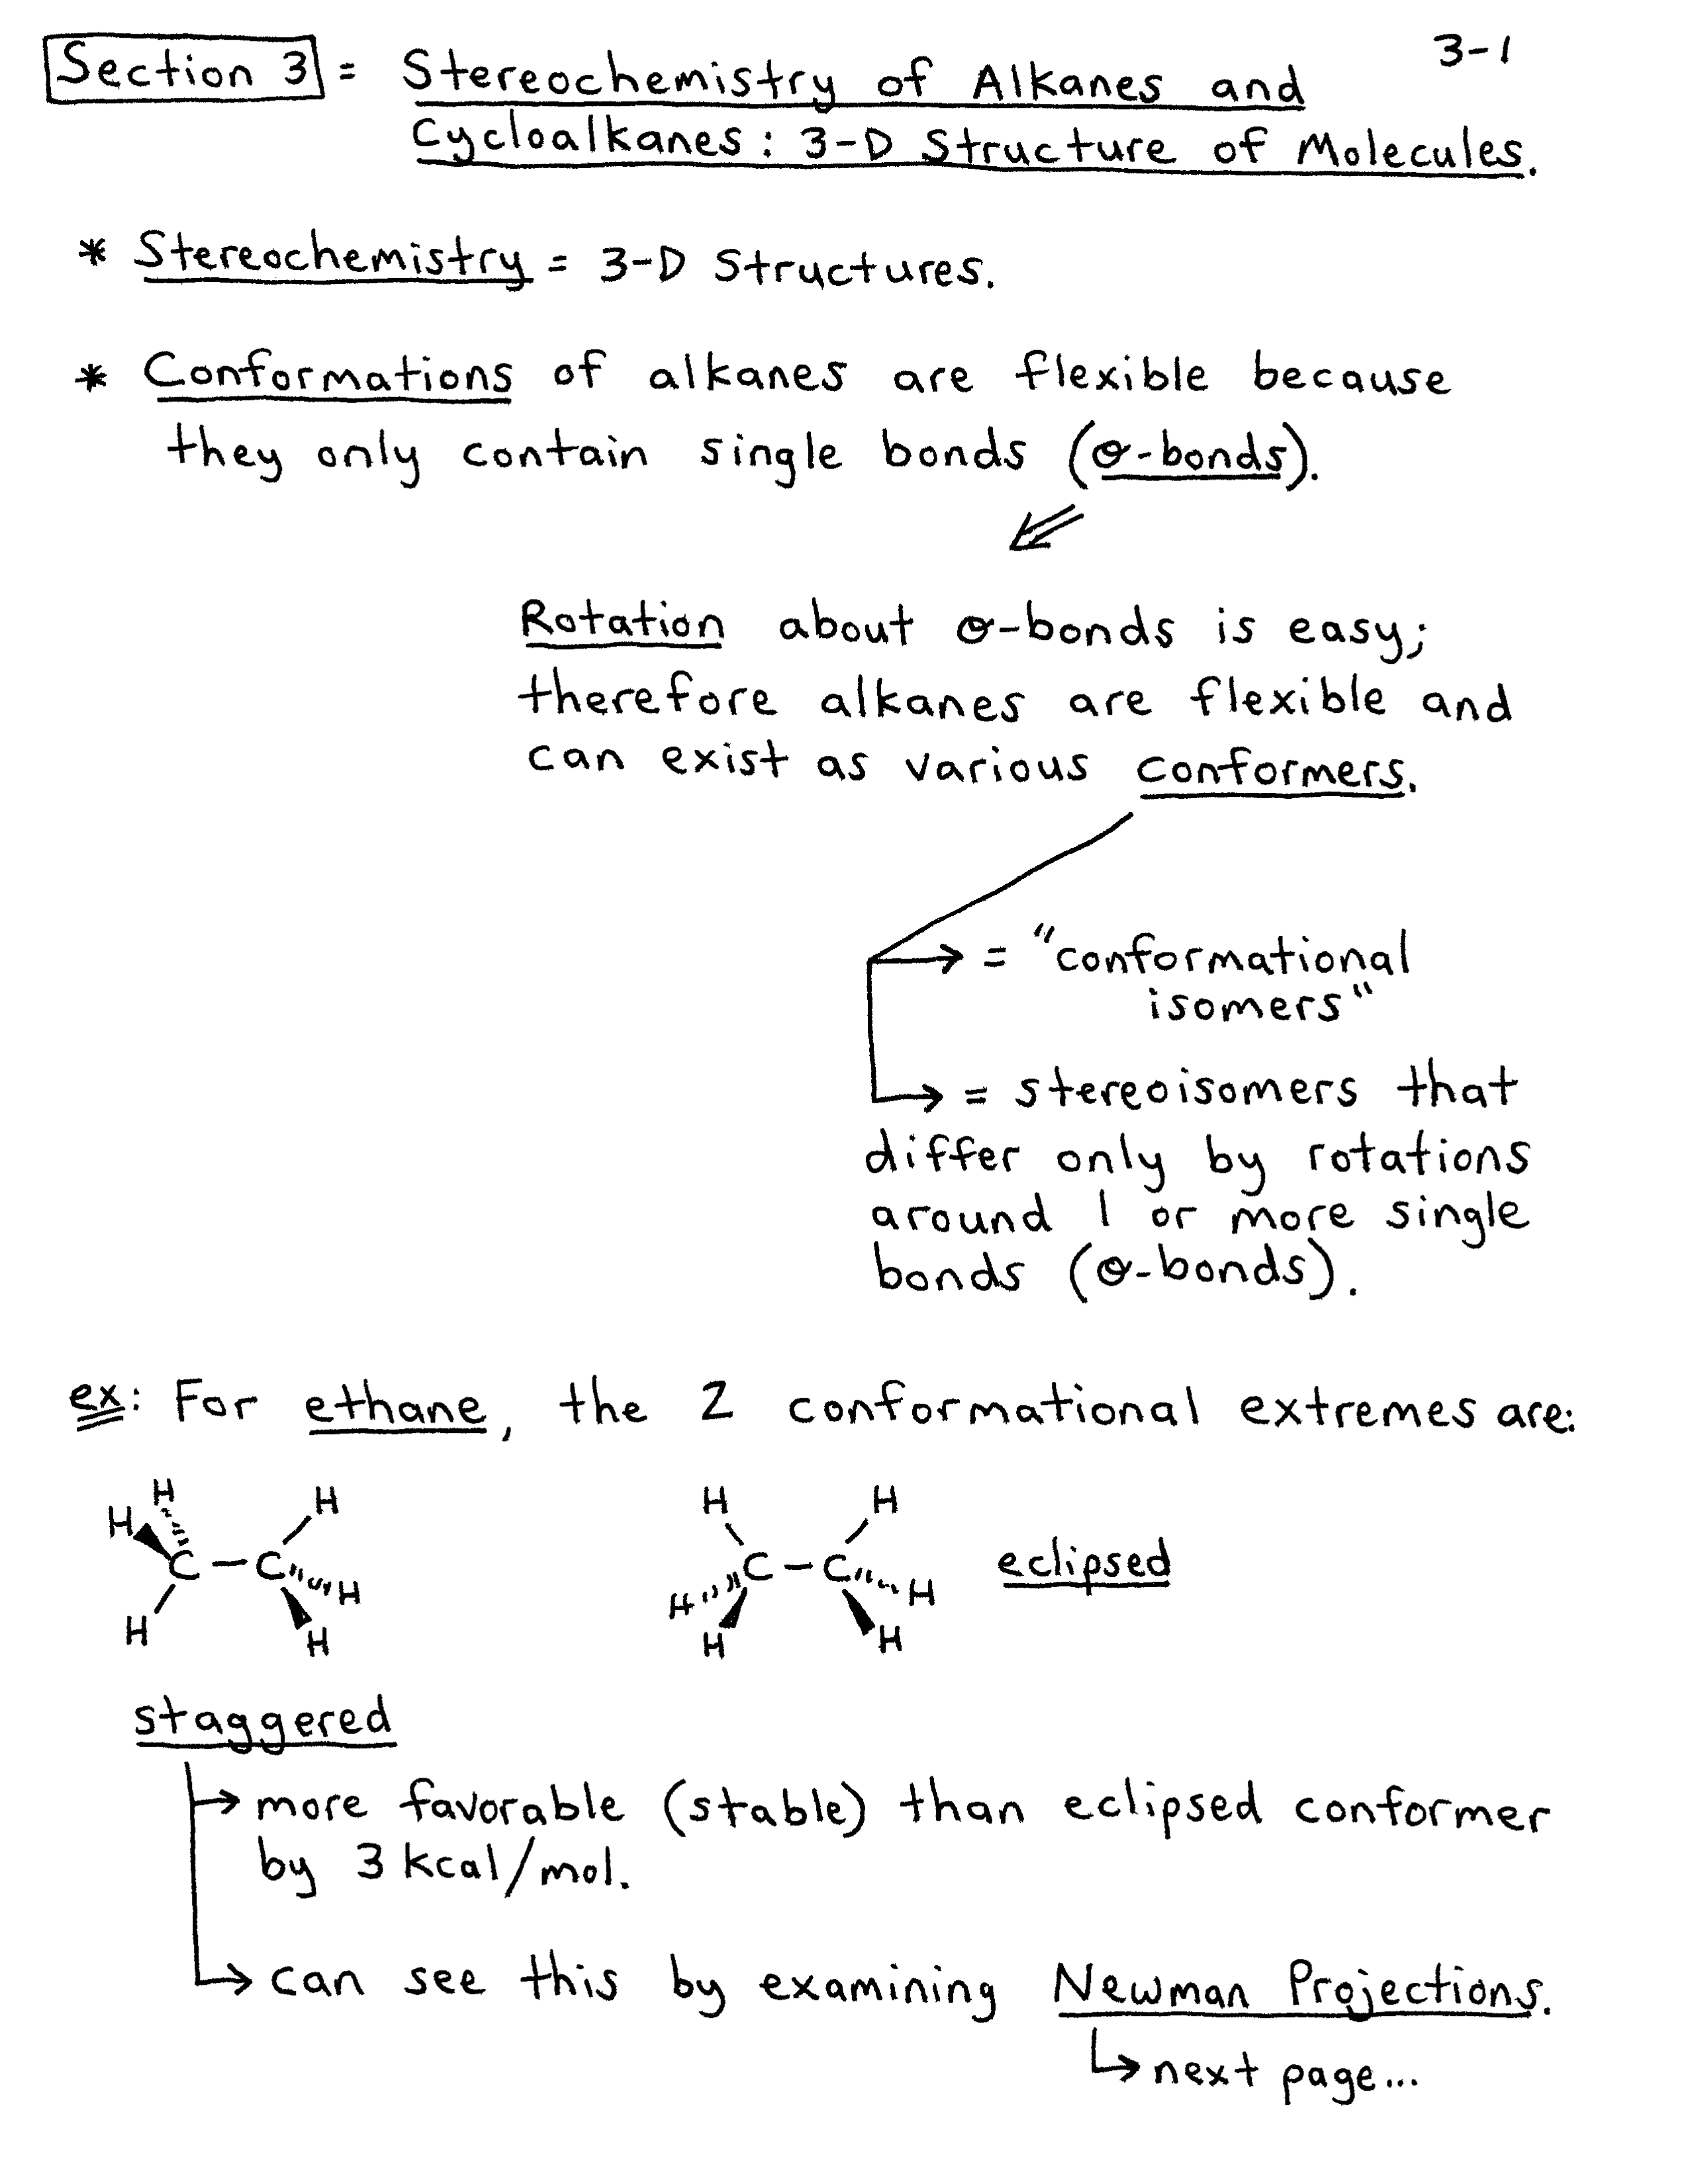 3-1
Section 3 = Stereochemistry of Alkanes and
Cycloalkanes: 3-D Structure of Molecules.
* Stereochemistry = 3-D Structures.
* Conformations of alkanes are flexible because
they only contain single bonds (σ-bonds).
Rotation about σ-bonds is easy;
therefore alkanes are flexible and
can exist as various conformers.
→ = "conformational
isomers"
→ = stereoisomers that
differ only by rotations
around 1 or more single
bonds (σ-bonds).
ex: For ethane, the 2 conformational extremes are:
H H H H
H
C - C C - C eclipsed
H H H
H H H H
staggered
→ more favorable (stable) than eclipsed conformer
by 3 kcal/mol.
→ can see this by examining Newman Projections.
→ next page...